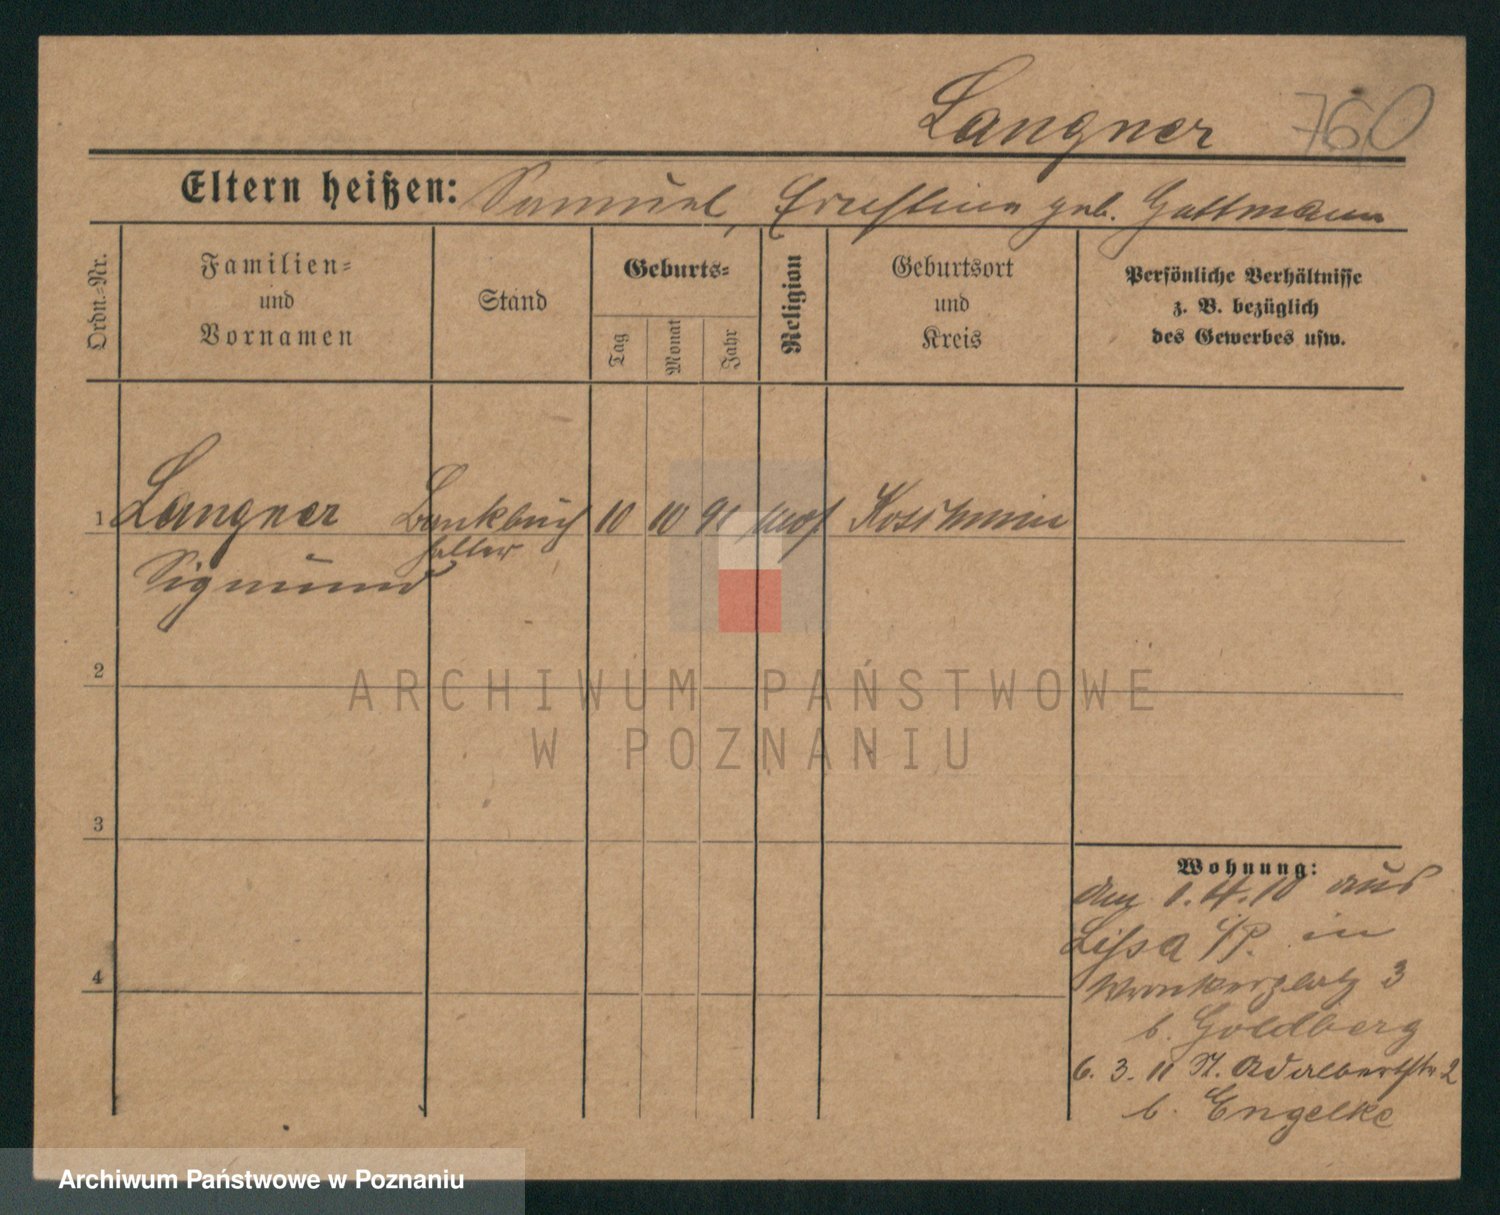 Langner 760
Eltern heißen: Samuel, Ernestine geb. Guttmann
Ordn.=Nr.
Familien=
und
Vornamen
Stand
Geburts=
Tag
Monat
Jahr
Religion
Geburtsort
und
Kreis
Persönliche Verhältnisse
z. B. bezüglich
des Gewerbes usw.
1 Langner Bankbuch 10 10 91 mos Koschmin
halter
Sigmund
2
ARCHIWUM PAŃSTWOWE
W POZNANIU
3
Wohnung:
am 1.4.10 aus
Lissa i/P. in
Wronkerplatz 3
b. Goldberg
4
6. 3. 11 St. Adalbertstr 2
b. Engelke
Archiwum Państwowe w Poznaniu